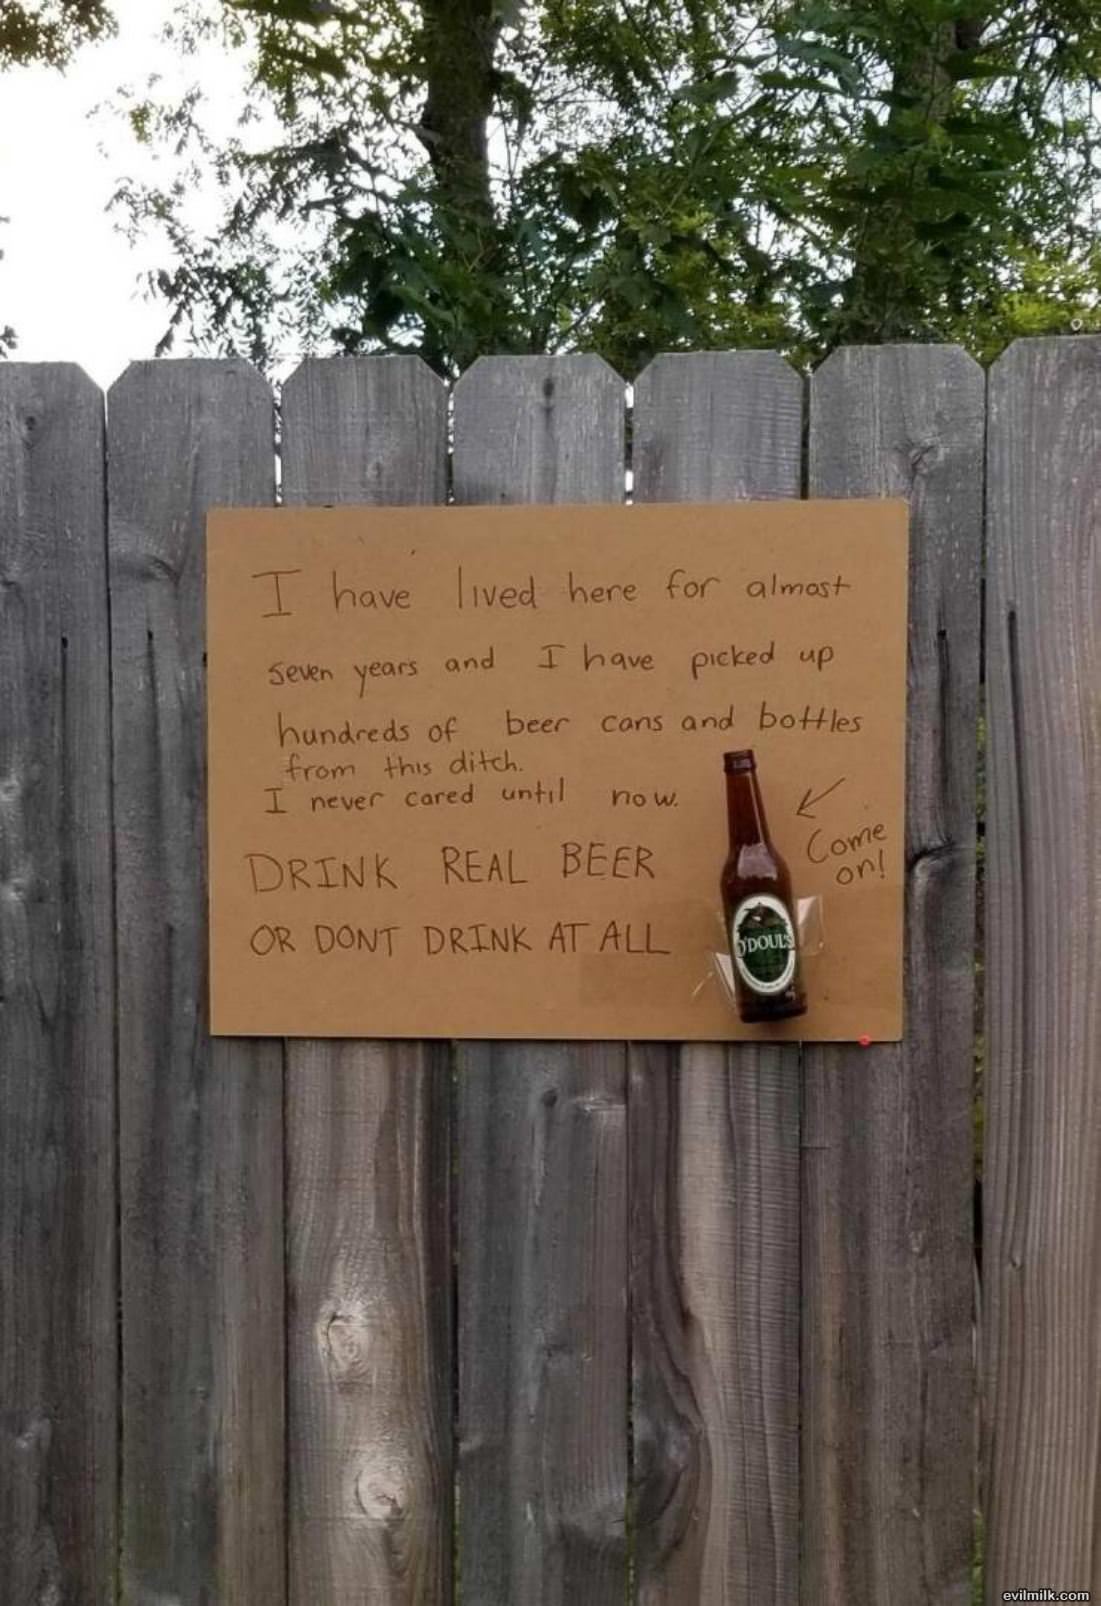 I have lived here for almost
seven years and I have picked up
hundreds of beer cans and bottles
from this ditch.
I never cared until now.
DRINK REAL BEER
OR DONT DRINK AT ALL
Come
on!
O'DOUL'S
evilmilk.com